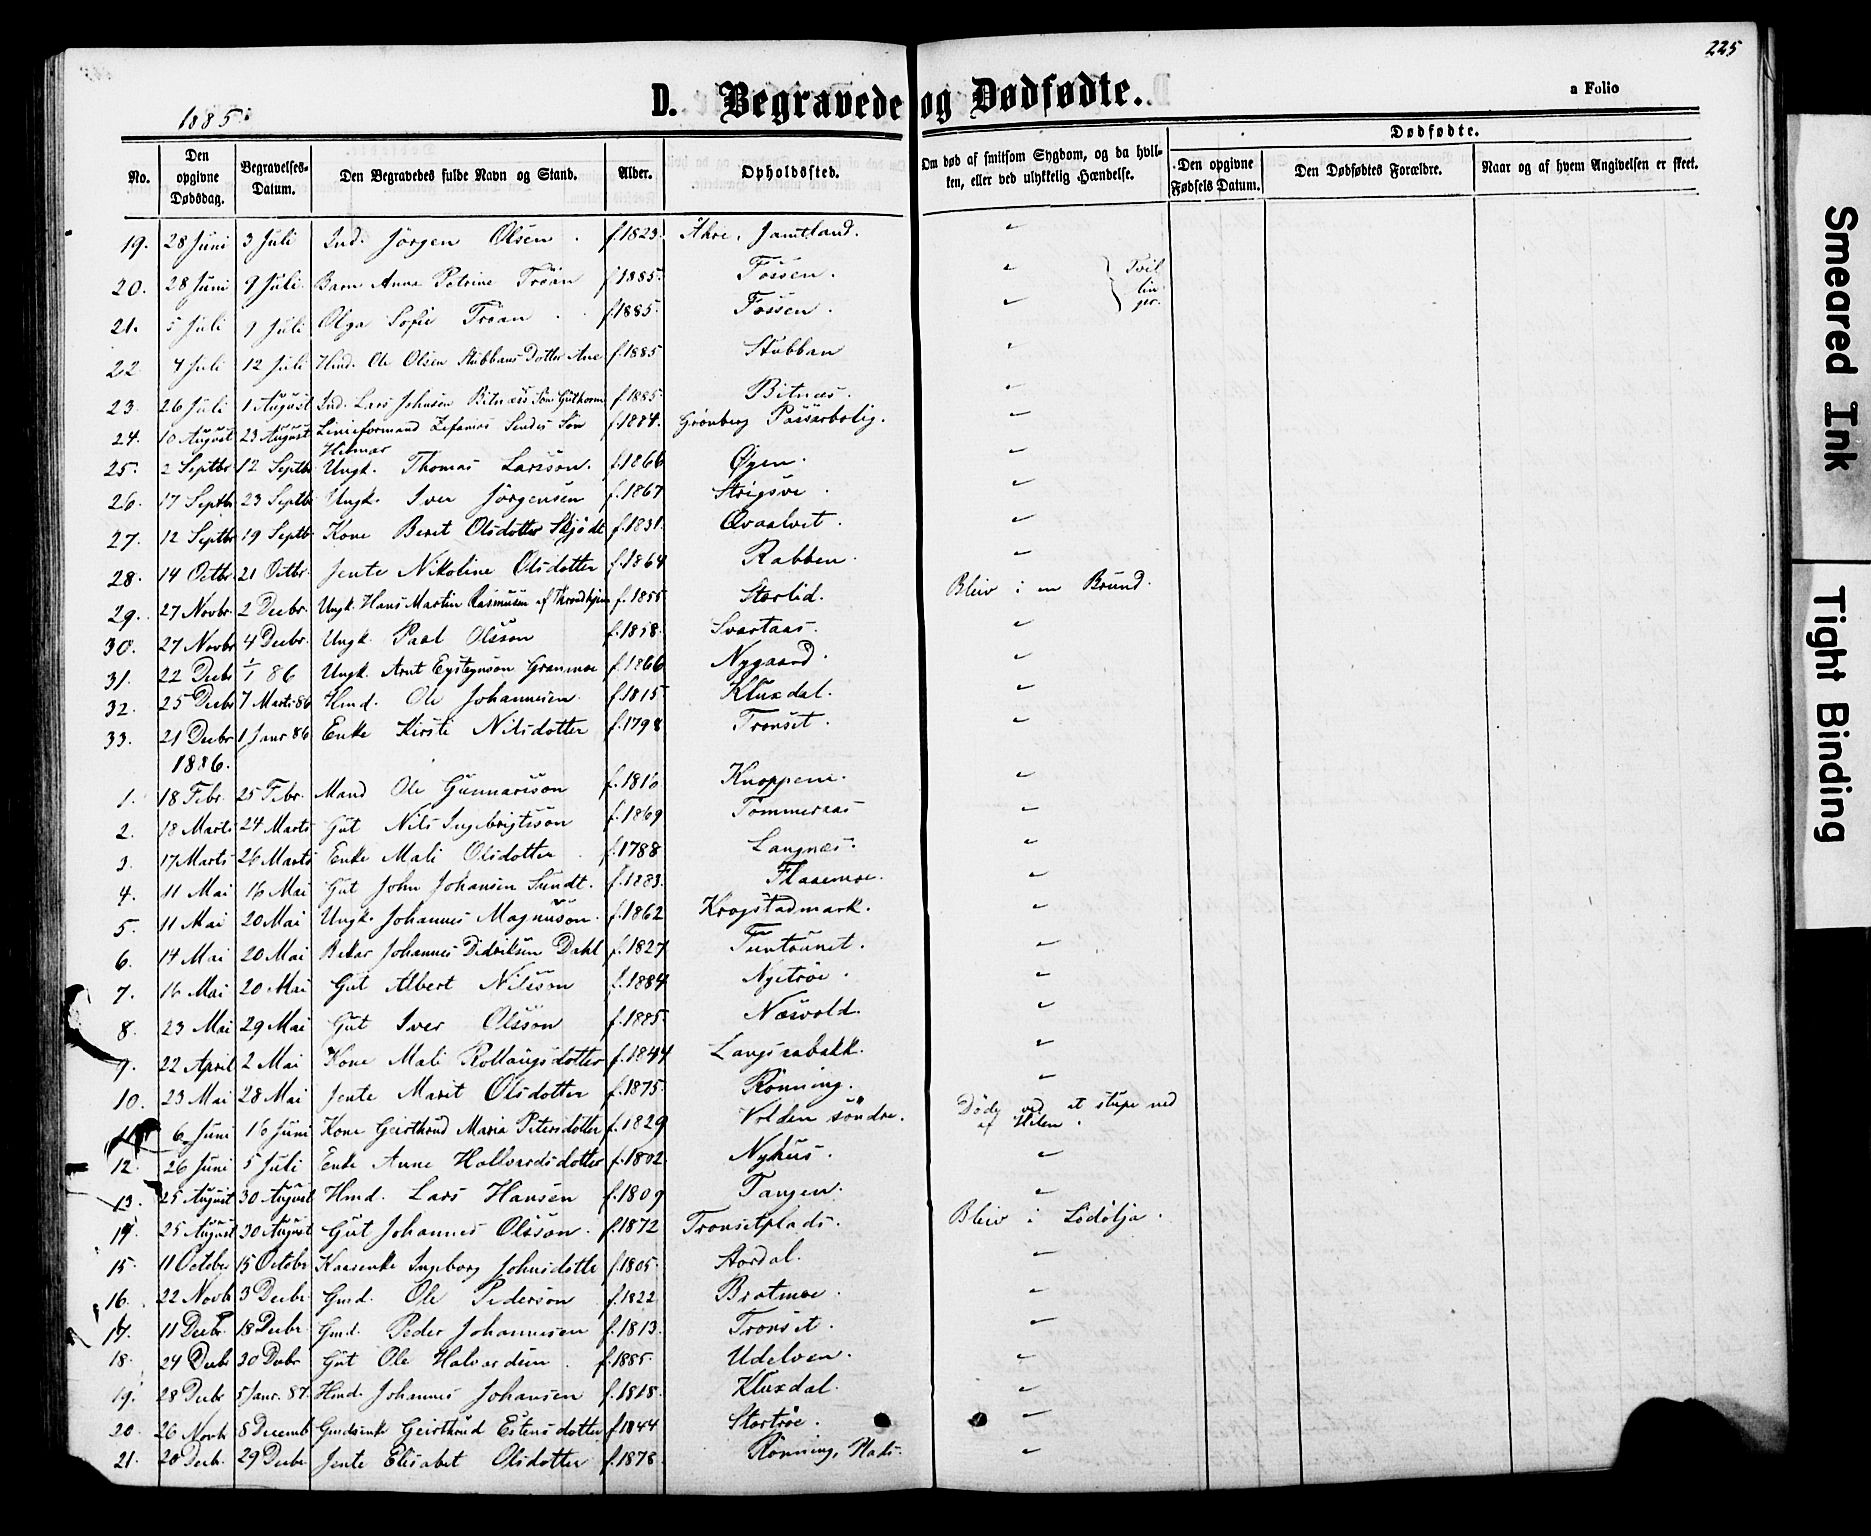 225
D. Begravede og Dødfødte.
a Folio
1885.
No. Den opgivne Dødsdag. Begravelses-Datum. Den Begravedes fulde Navn og Stand. Alder. Opholdssted. Om død af smitsom Sygdom, og da hvilken, eller ved ulykkelig Hændelse. Dødfødte. Den opgivne Fødsels Datum. Den Dødfødtes Forældre. Naar og af hvem Angivelsen er skeet.
19. 28 Juni 3 Juli Ind. Jörgen Olsen. f. 1823. Åhre, Jamtland. "
20. 28 Juni 9 Juli Barn Anna Petrine Tröan f 1885. Fossen. " Tvil
lin
ger.
21. 5 Juli 9 Juli Olga Sofie Tröan f 1885. Fossen. "
22. 4 Juli 12 Juli Hmd. Ole Olsen Stubbans Dotter Ane f. 1885 Stubban "
23. 26 Juli 1 August Ind. Lars Johnsen Bitnæs Sön Guthorm f 1885. Bitnæs. "
24. 10 August 23 August Linieformand Zefanias Sendes Sön Helmar f. 1884. Grönberg "
25. 2 Septbr 12 Septbr Ungk. Thomas Larsson. f. 1866 Øyen. "
26. 17 Septbr 23 Septbr Ungk. Iver Jörgensen f. 1867 "
27. 12 Septbr 19 Septb Kone Beret Olsdotter Skjödt f. 1831. "
28. 14 Octbr. 21 Octbr. Jente Nikoline Olsdotter f. 1864 Rabben. "
29. 27 Novbr. 2 Decbr. Ungk. Hans Martin Rasmusen af Throndhjem f. 1855 Storlid. Blev i en Brönd.
30. 27 Novbr 4 Decbr. Ungk. Paal Olsson f. 1858. Svartaas. "
31. 22 Decbr 1/1 86 Ungk. Arnt Eysteynsön Granmoe f. 1866 Nygaard. "
32. 25 Decbr 7 Marts 86 Hmd. Ole Johannesen. f. 1815. Kluxdal. "
33. 21 Decbr 1 Janr 86 Enke Kirsti Nilsdotter f. 1798 Tronset. "
1886.
1. 18 Febr. 25 Febr. Mand Ole Gunnarsson f. 1816 Knoppene. "
2. 18 Marts 24 Marts Gut Nils Ingebrigtsson f. 1869 Tömmeraas "
3. 17 Marts 26 Marts Enke Mali Olsdotter f. 1788 Langnæs. "
4. 11 Mai 16 Mai Gut John Johansen Sundt. f. 1883. Flaaemoe. "
5. 11 Mai 20 Mai Ungk. Johannes Magnuson. f. 1862 Krogstadmark. "
6. 14 Mai 20 Mai Johannes Didriksen Dahl f. 1827 "
7. 16 Mai 20 Mai Gut Albert Nilsson f. 1884 Nytröe. "
8. 23 Mai 29 Mai Gut Iver Olsson f. 1885. Næsvold. "
9. 22 April 2 Mai Kone Mali Rollaugsdotter f. 1844 Langsaabakk. "
10. 23 Mai 28 Mai Jente Marit Olsdotter f. 1875. Rönning. "
11. 6 Juni 16 Juni Kone Geirthrud Maria Petersdotter f. 1829 Volden söndre. Döde ved at stupe ned
af
12. 26 Juni 5 Juli Enke Anne Hallvardsdotter f. 1802. Nyhus. "
13. 25 August 30 August Hmd. Lars Hansen f. 1809 Tangen. "
14. 25 August 30 August Gut Johannes Olsson. f. 1872 Tronsetplads. Blev i Lödölja.
15. 11 Octobr 15 Octobr Ingeborg Johnsdotte f. 1805. Aordal. "
16. 22 Novb 3 Decbr. Gmd. Ole Pederson f. 1822 Bratmoe. "
17. 11 Decbr 18 Decbr Gmd. Peder Johannesen f. 1813. Tronset. "
18. 24 Decbr 30 Decbr Gut Ole Halvardsen f. 1885. Udelven. "
19. 28 Decbr 5 Janr. 87. Hmd. Johannes Johansen f. 1818. Kluxdal. "
20. 26 Novb 8 Decemb Gmdsenke Geirthrud Estensdotter f 1844 Stortröe. "
21. 20 Decb. 29 Decbr Jente Elisabet Olsdotter f. 1878. Rönning, Plads. "
Smeared Ink
Tight Binding